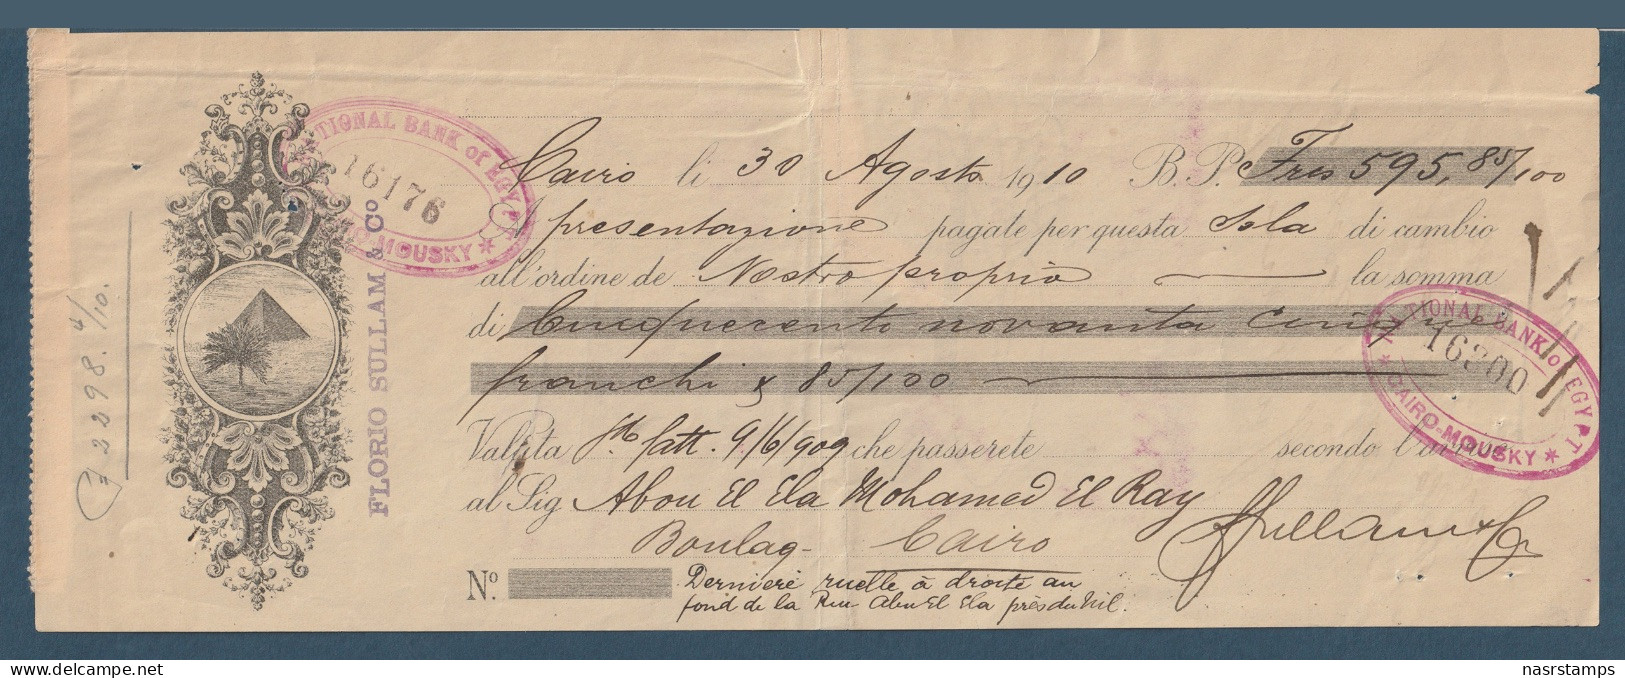 NATIONAL BANK of EGYPT
16176
CAIRO-MOUSKY *
FLORIO SULLAM & Co
2298. 4/10.
Cairo li 30 Agosto 1910 B.P. Frcs 595,85/100
A presentazione pagate per questa Sola di cambio
all'ordine de Nostro proprio la somma
di Cinquecento novanta Cinque
franchi & 85/100
NATIONAL BANK of EGYPT
16200
* CAIRO-MOUSKY *
Valuta fatt. 9/6/909 che passerete secondo l'avviso
al Sig Abou El Ela Mohamed El Ray
Boulaq - Cairo
FSullam & Co
No. Derniere ruelle à droite au
fond de la Rue Abu El Ela près du Nil.
nasrstamps